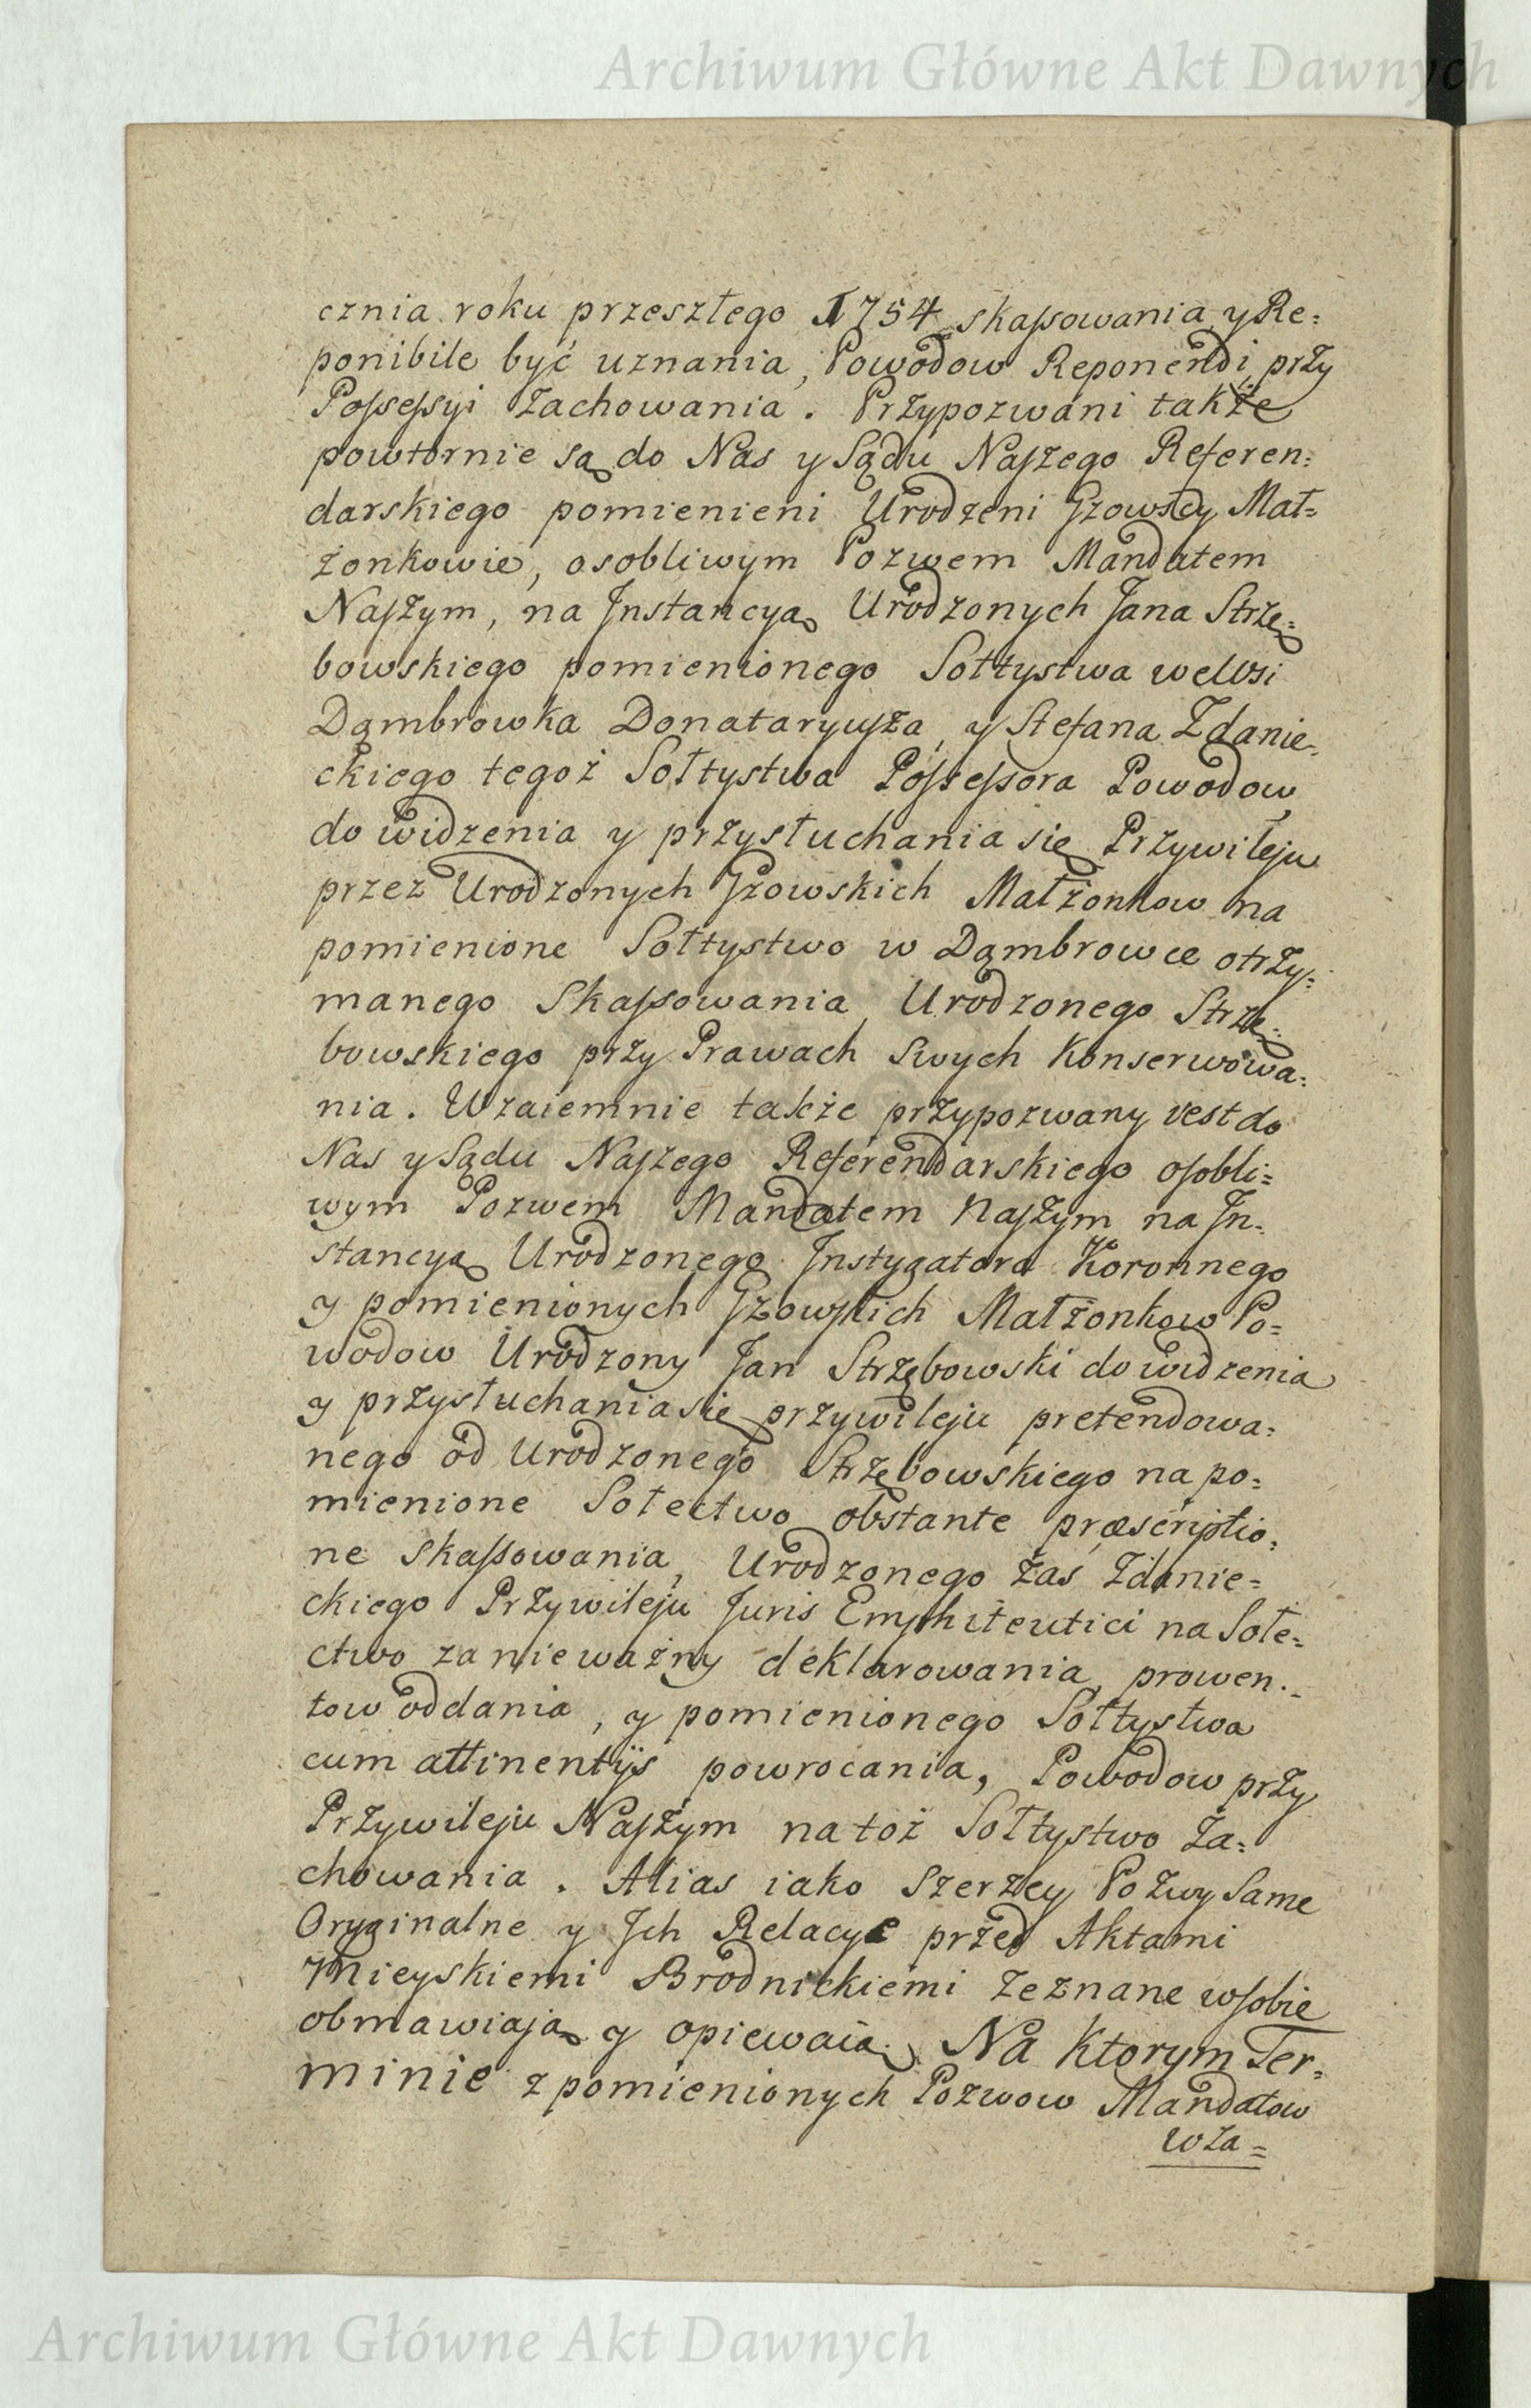 Archiwum Główne Akt Dawnych
cznia roku przeszłego 1754 skassowania, y Re=
ponibile być uznania, Powodow Reponendi, przy
Possessyi Zachowania. Przypozwani także
powtornie są do Nas y Sądu Naszego Referen=
darskiego pomienieni Urodzeni Gzowscy Mał=
żonkowie, osobliwym Pozwem Mandatem
Naszym, na Jnstancyą Urodzonych Jana Strzę=
bowskiego pomienionego Sołtystwa we Wsi
Dąmbrowka Donataryusza, y Stefana Zdanie=
ckiego tegoż Sołtystwa Possessora Powodow,
do widzenia y przysłuchania się Przywileju
przez Urodzonych Gzowskich Małżonkow na
pomienione Sołtystwo w Dąmbrowce otrzy=
manego Skassowania, Urodzonego Strzę=
bowskiego przy Prawach Swych Konserwowa=
nia. Wzaiemnie także przypozwany iest do
Nas y Sądu Naszego Referendarskiego osobli=
wym Pozwem Mandatem Naszym na Jn=
stancyą Urodzonego Jnstygatora Koronnego
y pomienionych Gzowskich Małżonkow Po=
wodow Urodzony Jan Strzębowski do widzenia
y przysłuchania się przywileju pretendowa=
nego od Urodzonego Strzębowskiego na po=
mienione Sołectwo obstante præscriptio=
ne skassowania, Urodzonego Zaś Zdanie=
ckiego Przywileju Juris Emphiteutici na Sołe=
ctwo za nieważny deklarowania, prowen=
tow oddania, y pomienionego Sołtystwa
cum attinentijs powrocania, Powodow przy
Przywileju Naszym na toż Sołtystwo Za=
chowania. Alias iako Szerzey Pozwy Same
Oryginalne y Jch Relacye przed Aktami
Mieyskiemi Brodnickiemi Zeznane w sobie
obmawiają y opiewaią. Na Ktorym Ter=
minie z pomienionych Pozwow Mandatow
w Za=
Archiwum Główne Akt Dawnych